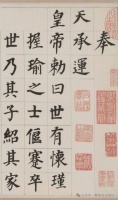 奉
天承運
皇帝勅曰世有悚瑾
握瑜之士偃蹇卒
世乃其子紹其家